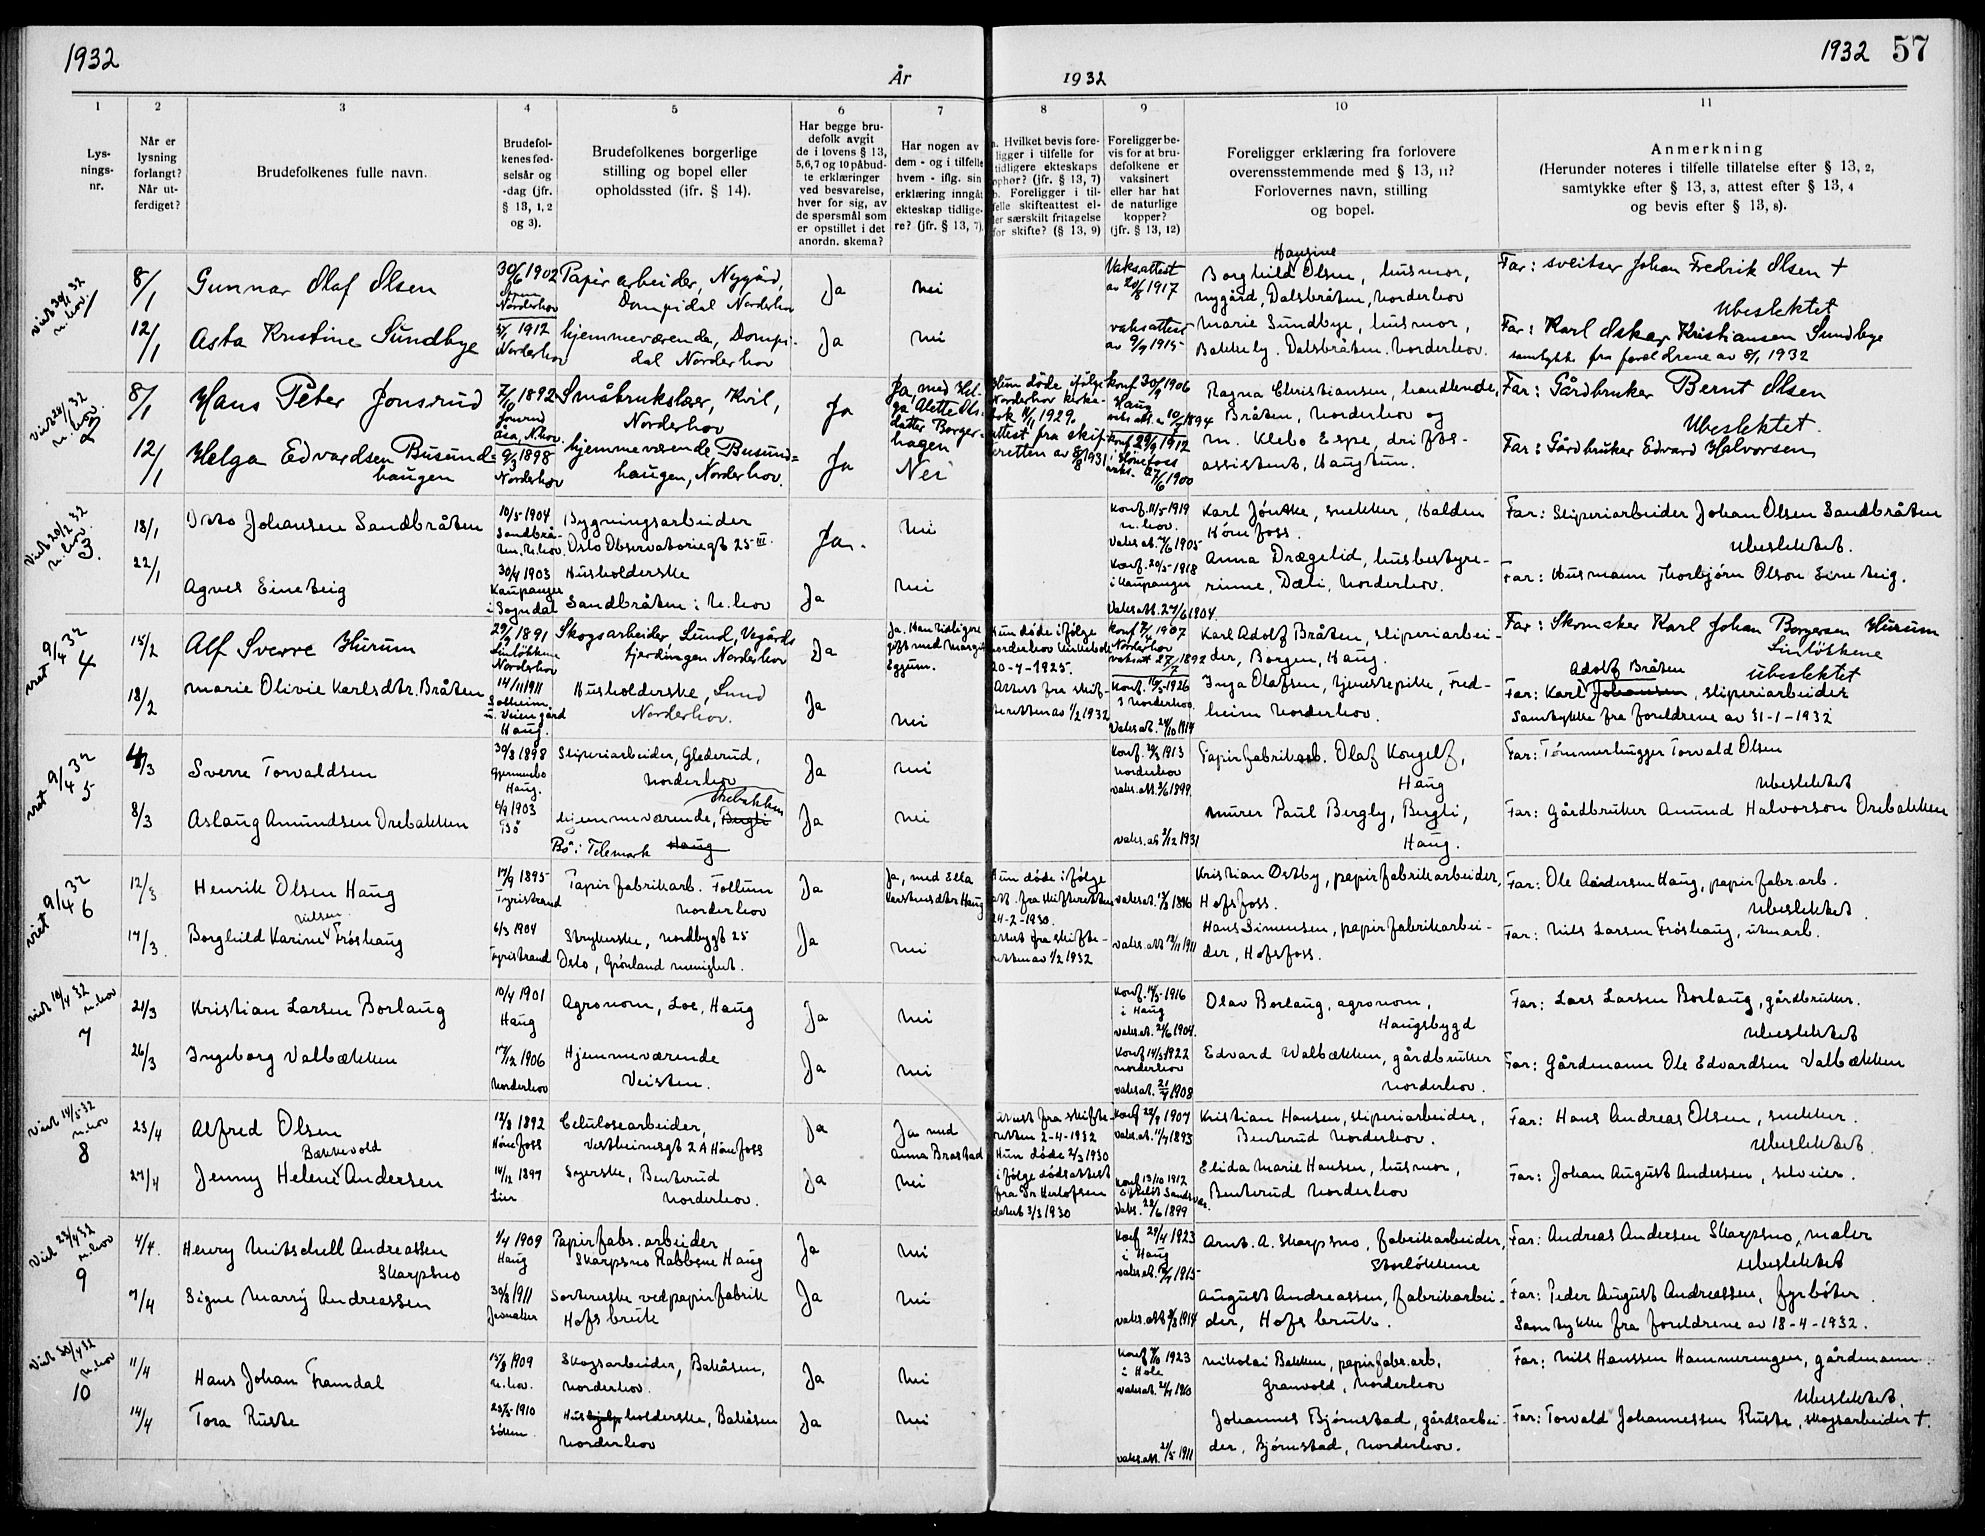 1932
År
1932
1932 57
1
2
3
4
5
6
7
8
9
10
11
Lys-
nings-
nr.
Når er
lysning
forlangt?
Når ut-
ferdiget?
Brudefolkenes fulle navn.
Brudefol-
kenes fød-
selsår og
-dag (jfr.
§ 13, 1, 2
og 3).
Brudefolkenes borgerlige
stilling og bopel eller
opholdssted (jfr. § 14).
Har begge bru-
defolk avgit
de i lovens § 13,
5,6,7 og 10 påbud-
te erklæringer
ved besvarelse,
hver for sig, av
de spørsmål som
er opstillet i det
anordn. skema?
Har nogen av
dem - og i tilfelle
hvem - iflg. sin
erklæring inngåt
ekteskap tidlige-
re? (jfr. § 13, 7).
Hvilket bevis fore-
ligger i tilfelle for
tidligere ekteskaps
ophør? (jfr. § 13, 7)
b. Foreligger i til-
felle skifteattest el-
ler særskilt fritagelse
for skifte? (§ 13, 9)
Foreligger be-
vis for at bru-
defolkene er
vaksinert
eller har hat
de naturlige
kopper?
(jfr. § 13, 12)
Foreligger erklæring fra forlovere
overensstemmende med § 13, 11?
Forlovernes navn, stilling
og bopel.
Anmerkning
(Herunder noteres i tilfelle tillatelse efter § 13, 2,
samtykke efter § 13, 3, attest efter § 13, 4
og bevis efter § 13, 8).
8/1
Gunnar Olaf Olsen
30/6 1902
Norderhov
Papirarbeider, Nygård,
Dompidal Norderhov
Ja
Nei
Vaksattest
av 20/8 1917
Hansine
Borghild Olsen, husmor,
Nygård, Dalsbråten, Norderhov
Far: sveitser Johan Fredrik Olsen +
Ubeslektet
12/1
Asta Kristine Sundbye
1912
Norderhov
hjemmeværende, Dompi-
dal Norderhov
Ja
Nei
vaksattest
av 9/9 1915
Marie Sundbye, husmor,
Bakkely, Dalsbråten, Norderhov.
Far: Karl Oskar Kristiansen Sundbye
samtykke fra foreldrene av 8/1 1932
8/1
Hans Peter Jonsrud
7/10 1892
Jonsrud
Åsa, N.hov.
Småbruksleier, Kvil,
Norderhov
Ja
Ja, med Hel-
ga Alette Ols-
datter Borger-
hagen
Hun døde ifølge
Norderhov kirke-
bok 11/1 1929.
attest fra skif-
teretten av 8/8 1931
Konf 30/9 1906
Haug
Ragna Christiansen, handlende,
Bråten, Norderhov og
M. Klebo Espe, drifts-
assistent, Haugtun.
Far: Gårdbruker Bernt Olsen
Ubeslektet.
2
12/1
Helga Edvardsen Busund=
haugen
9/3 1898
Norderhov
hjemmeværende Busund=
haugen, Norderhov.
Ja
Nei
konf 29/9 1912
i Hønefoss
vaks. 27/6 1900
Far: Gårdbruker Edvard Halvorsen
3
18/1
Otto Johansen Sandbråten
10/5-1904
Sandbrå-
ten, N.hov.
Bygningsarbeider
Oslo Observatoriegt 25 III.
Ja.
Nei
Konf. 11/5-1919
N.hov.
Vaks.at. 7/6 1905
Karl Jontke, snekker, Halden
Hønefoss.
Far: Sliperiarbeider Johan Olsen Sandbråten
Ubeslektet.
22/1
Agnes Eineteig
30/4 1903
Kaupanger
i Sogndal
Husholderske
Sandbråten i N.hov
Ja
Nei
Konf. 20/5-1918
i Kaupanger
Vaks.att. 27/6 1904
Anna Drægelid, husbestyre-
rinne, Dæli, Norderhov.
Far: Husmann Thorbjørn Olson Eineteig.
4
15/2
Alf Sverre Hurum
29/9 1891
Linløkkene
Norderhov
Skogsarbeider Lund, Vegårds
fjerdingen Norderhov
Ja
Ja. Han tidligere
gift med Margit
Eggum.
Hun døde ifølge
Norderhov kirkebok
20-7-1925.
Konf 7/4 1907
Norderhov
vaksatt 27/7 1892
Karl Adolf Bråten, sliperiarbei-
der, Borgen, Haug.
Far: Skomaker Karl Johan Borgersen Hurum
Linløkkene
ubeslektet
18/2
Marie Olivie Karlsdtr. Bråten
14/11 1911
Solheim
u. Veien gård
Haug.
Husholderske, Lund
Norderhov.
Ja
Nei
Attest fra skif-
teretten av 1/2 1932
Konf. 16/5-1926
i Norderhov
Vaks.at. 24/10 1914
Inga Olafsen, tjenestepike, Fred-
heim Norderhov.
Adolf Bråten
Far: Karl Johansen, sliperiarbeider
Samtykke fra foreldrene av 31-1-1932
vret 9/4 32
5
4/3
Sverre Torvaldsen
30/8 1898
Haug.
Sliperiarbeider, Gladerud,
Norderhov
Ja
Nei
Norderhov
vaks.att. 3/6 1899
Papirfabrikarb. Olaf Kongelf,
Haug
Far: Tømmerhugger Torvald Olsen
Ubeslektet
8/3
Aslaug Amundsen Orebakken
6/9 1903
Bø
Orebakken
hjemmeværende, Bergli
Bø i Telemark Haug
Ja
Nei
vaks.att 3/12 1931
Murer Paul Bergly, Bergli,
Haug.
Far: Gårdbruker Amund Halvorson Orebakken
vret 9/4 32
6
12/3
Henrik Olsen Haug
17/9 1895
Tyristrand
Papirfabrikarb. Follum
Norderhov
Ja
Ja, med Ella
Karstensdtr Haug
Hun døde ifølge
att. fra skifteretten
24-2-1930.
Kristian Østby, papirfabrikarbeider,
Hofsfoss.
Far: Ole Andersen Haug, papirfabr.arb.
Ubeslektet.
17/3.
Nilsen
Borghild Karine Frøshaug
6/3 1904
Tyristrand
Strykerske, Nordbygt 25
Oslo, Grønland menighet.
Ja
Nei
attest fra skifte-
retten av 1/2 1932
vaks.att 13/11 1911
Hans Simensen, papirfabrikarbei-
der, Hofsfoss.
Far: Nils Larsen Frøshaug, utearb.
7
21/3
Kristian Larsen Borlaug
10/4 1901
Haug
Agronom, Loe, Haug
Ja
Nei
Konf. 14/5-1916
i Haug
vaks.at. 24/6 1904.
Olav Borlaug, agronom,
Haugsbygd
Far: Lars Larsen Borlaug, gårdbruker.
Ubeslektet
26/3
Ingeborg Valbækken
17/12 1906
Norderhov
Hjemmeværende
Veisten.
Ja
Nei
Konf 14/5 1922
Norderhov
vaks.at. 21/7 1908
Edvard Walbækken, gårdbruker
Norderhov.
Far: Gårdmann Ole Edvardsen Valbækken
8
23/4
Alfred Olsen
12/8 1892
Hønefoss
Celulosearbeider,
Vestheimsgt 2A Hønefoss
Ja
Ja med
Anna Brastad
attest fra skifte-
retten 2-4-1932
Hun døde 2/3 1930
Konf 22/9 1907
vaks.at. 11/7 1893
Kristian Hansen, sliperiarbeider,
Benterud Norderhov.
Far: Hans Andreas Olsen, snekker.
Ubeslektet.
27/4
Bækkevold
Jenny Helene Andersen
14/12 1897
Lier
Syerske, Benterud
Norderhov.
Ja
Nei
ifølge dødsattest
fra Dr. Herlofsen
datert 3/3 1930
konf 13/10 1912
Vaks. 22/6 1899
Elida Marie Hansen, husmor,
Benterud Norderhov
Far: Johan August Andersen, selveier.
Viet 23/4 32
N.hov
9
4/4.
Henry Mitschell Andreassen
Skarpsno
1/4 1909
Haug
Papirfabr. arbeider
Skarpsno Rabbene Haug
Ja
Nei
Konf 29/4 1923
i Haug
Arnt. A. Skarpsno, fabrikarbeider,
Storløkkene
Far: Andreas Andersen Skarpsno, maler
Ubeslektet
7/4
Signe Marry Andreassen
30/8 1911
Jevnaker
Sortererske ved papirfabrik
Hofs bruk
Ja
Nei
August Andreassen, fabrikarbei-
der, Hofs bruk.
Far: Peder August Andreassen, fyrbøter
Samtykke fra foreldrene av 18-4-1932.
Viet 30/4 32
N.hov
10
11/4
Hans Johan Framdal
15/8 1909
N.hov.
Skogsarbeider, Bakåsen,
Norderhov.
Ja
Nei
Konf 7/10 1923
i Hole
Nikolai Bakken, papirfabr.arb,
Granvold, Norderhov
Far: Nils Hanssen Hammeringen, gårdmann.
Ubeslektet.
14/4
Tora Ruste
23/5-1910
Husholderske, Bakåsen
Norderhov
Ja
Nei
vaks.att. 21/5 1911
Johannes Bjørnstad, gårdsarbei-
der, Bjørnstad, Norderhov.
Far: Torvald Johannessen Ruste, skogsarbeider +.